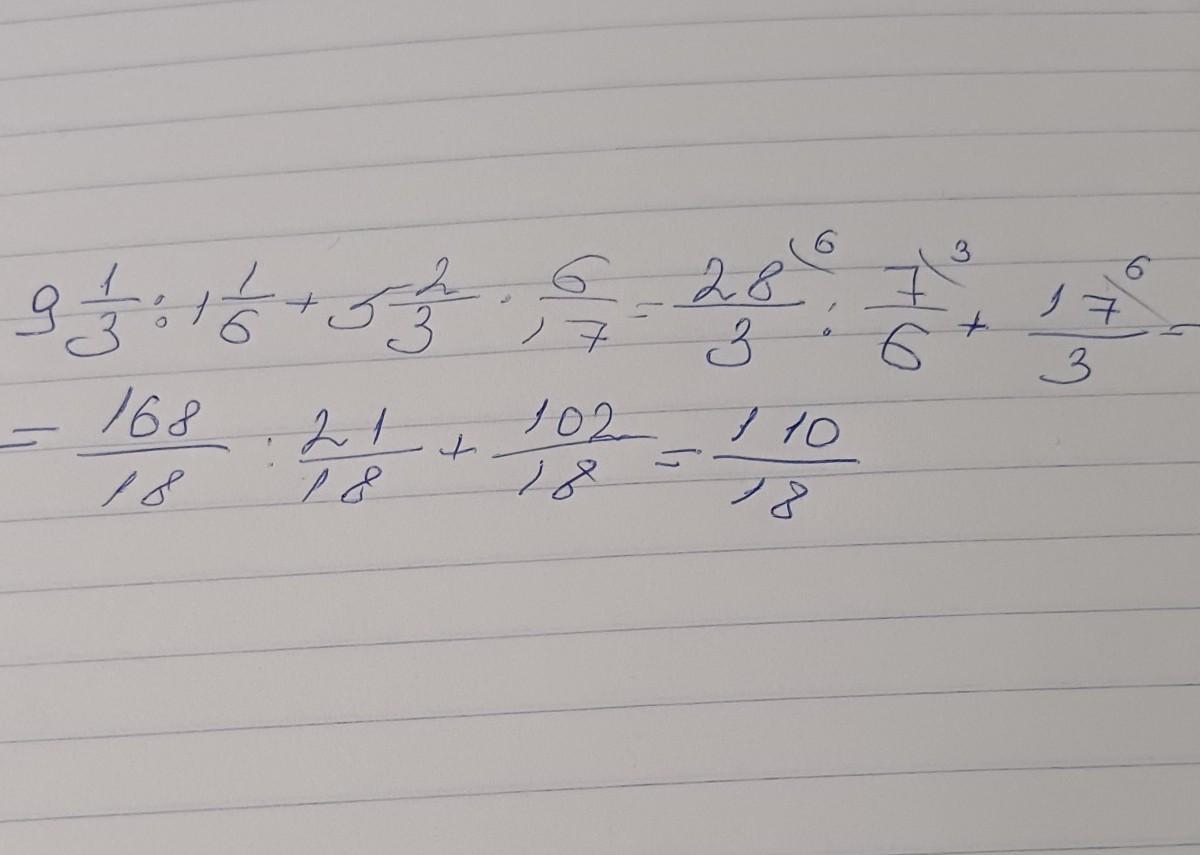 9 1/3 : 1 1/6 + 5 2/3 · 6/17 = 28\6/3 : 7\3/6 + 17\6/3 =
= 168/18 : 21/18 + 102/18 = 110/18